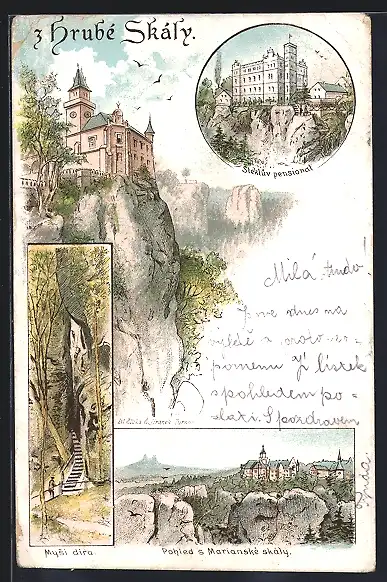 z Hrubé Skály.
Steklův pensionat
Milá
dnes na
výletě a proto
pomenu Jí lístek
s pohledem po-
slati. S pozdravem
Myší díra.
Pohled s Marianské skály.